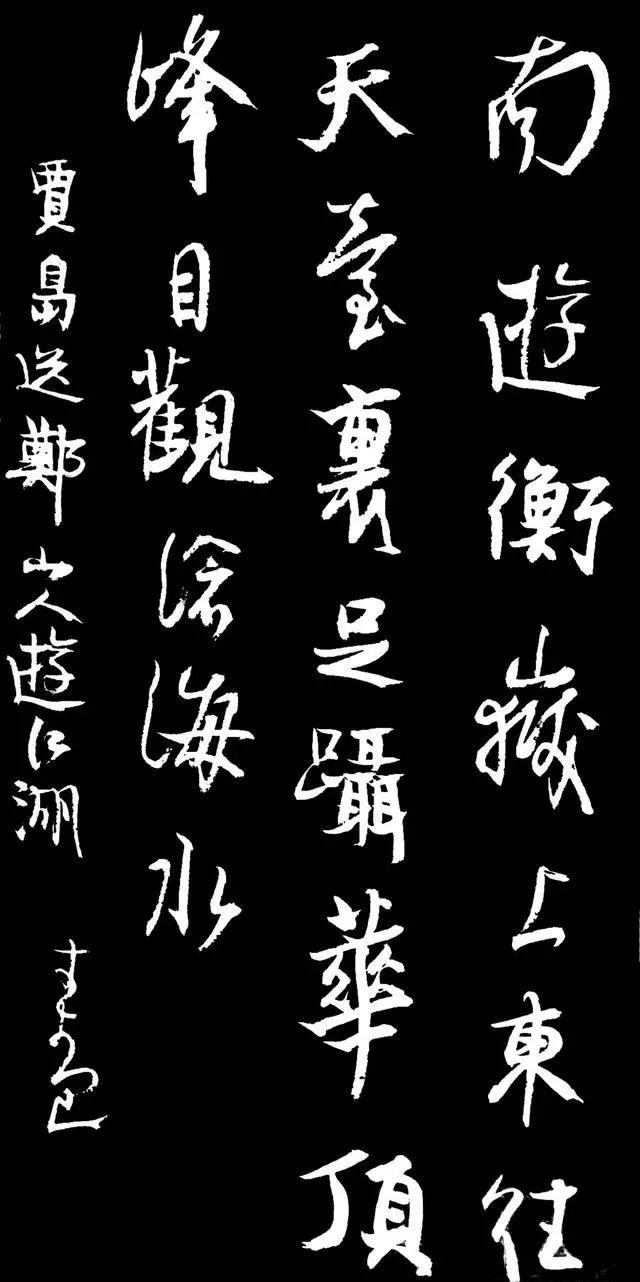 南遊衡嶽上東往
天臺裏足躡華頂
峰目觀滄海水
賈島送鄭山人遊江湖